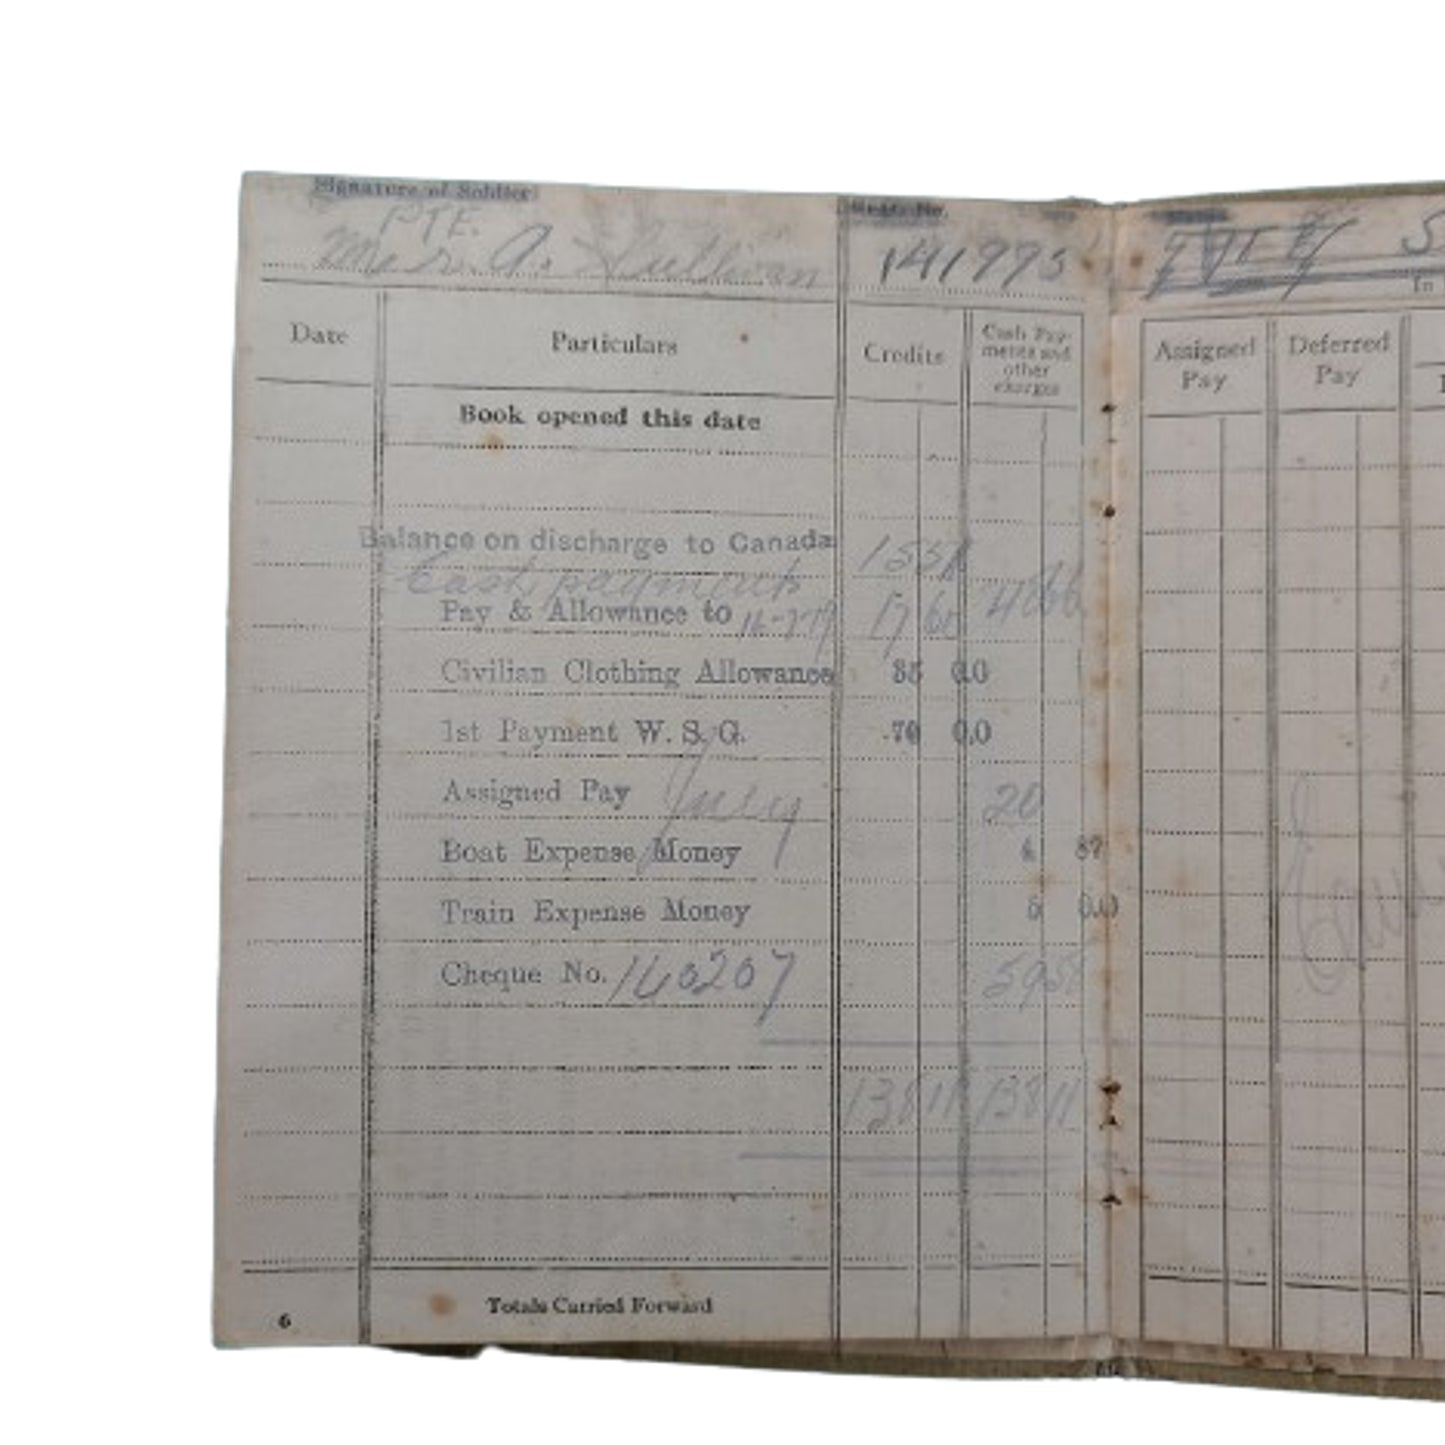 Signature of Soldier
Regtl. No.
PTE.
A. Sullivan
141775
In
Date
Particulars
Credits
Cash Pay-
ments and
other
charges
Assigned
Pay
Deferred
Pay
Book opened this date
Balance on discharge to Canada 1551
Cash payments 4866
Pay & Allowance to 16-7-19 17 60
Civilian Clothing Allowance 35 00
1st Payment W. S. G. 70 00
Assigned Pay July 20
Boat Expense Money 4 87
Train Expense Money 5 00
Cheque No. 140207 5958
13811 13811
Totals Carried Forward
6